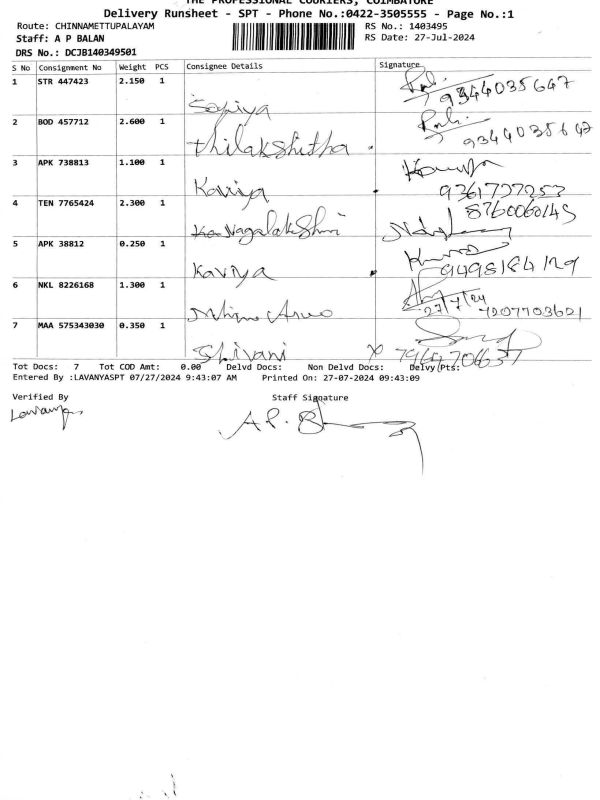 THE PROFESSIONAL COURIERS, COIMBATORE
Delivery Runsheet - SPT - Phone No.:0422-3505555 - Page No.:1
Route: CHINNAMETTUPALAYAM RS No.: 1403495
Staff: A P BALAN RS Date: 27-Jul-2024
DRS No.: DCJB140349501
S No Consignment No Weight PCS Consignee Details Signature
1 STR 447423 2.150 1 Sopiya 9344035647
2 BOD 457712 2.600 1 Thilakshitha 9344035647
3 APK 738813 1.100 1 Kaviya 9361727253
4 TEN 7765424 2.300 1 Nagalakshmi 8760060145
5 APK 38812 0.250 1 Kaviya 9498184129
6 NKL 8226168 1.300 1 27/7/24 7207703621
7 MAA 575343030 0.350 1 Shivani
Tot Docs: 7 Tot COD Amt: 0.00 Delvd Docs: Non Delvd Docs: Delvy Pts:
Entered By :LAVANYASPT 07/27/2024 9:43:07 AM Printed On: 27-07-2024 09:43:09
Verified By Staff Signature
Lavanya A P. B